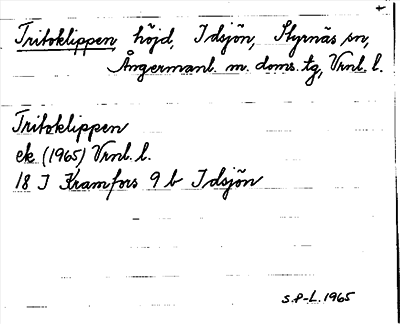 Tritoklippen höjd, Idsjön, Styrnäs sn,
Ångermanl. m. doms. tg, Vrnl. l.
Tritoklippen
ek (1965) Vrnl. l.
18 I Kramfors 9 b Idsjön
S.P-L. 1965